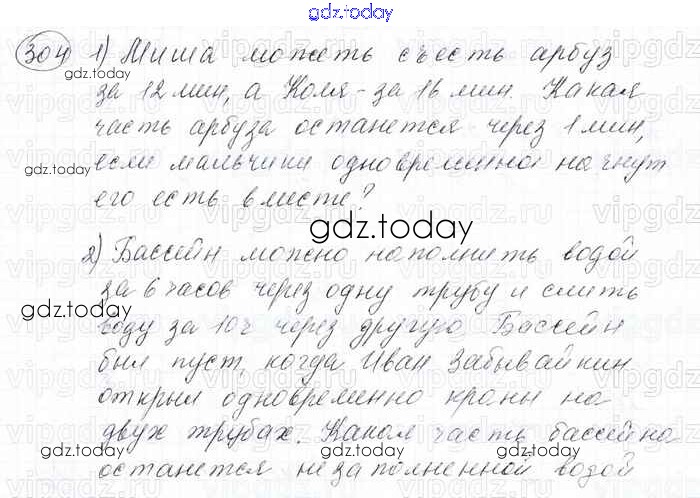 gdz.today
304 1) Миша может съесть арбуз
gdz.today
за 12 мин, а Коля - за 16 мин. Какая
часть арбуза останется через 1 мин,
если мальчики одновременно начнут
gdz.today
его есть вместе?
gdz.today
2) Бассейн можно наполнить водой
за 6 часов через одну трубу и слить
gdz.today
воду за 10 ч через другую. Бассейн
был пуст, когда Иван Забывайкин
gdz.today
открыл одновременно краны на
двух трубах. Какая часть бассейна
gdz.today
gdz.today
останется незаполненной водой